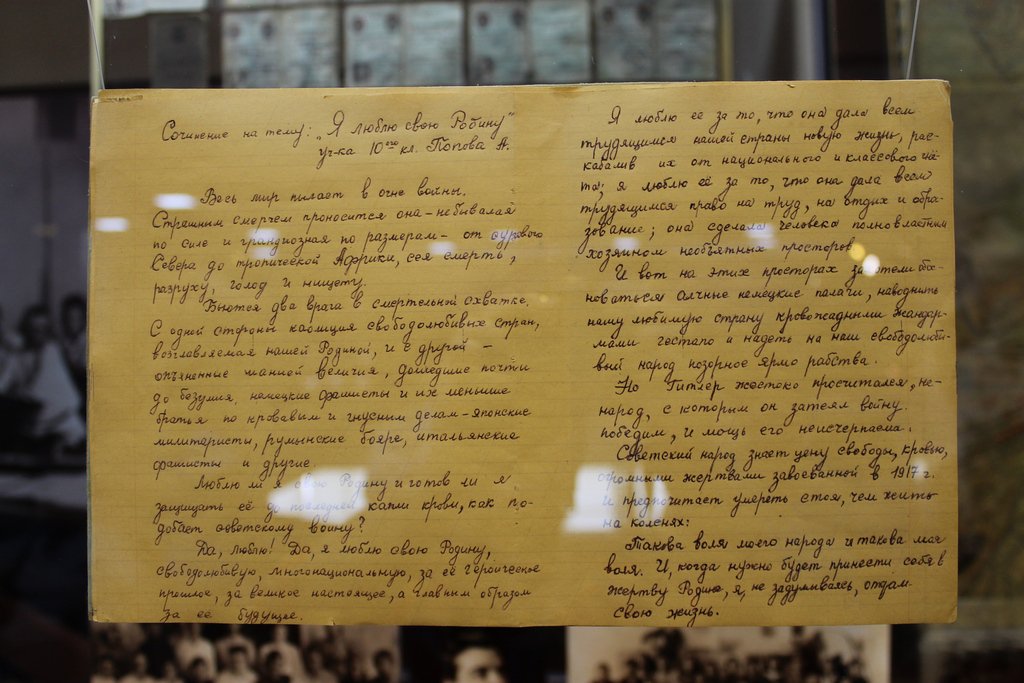 Сочинение на тему: „Я люблю свою Родину"
уч-ка 10ого кл. Попова А.
Весь мир пылает в огне войны.
Страшным смерчем проносится она – небывалая
по силе и грандиозная по размерам – от сурового
Севера до тропической Африки, сея смерть,
разруху, голод и нищету.
Бьются два врага в смертельной схватке.
С одной стороны коалиция свободолюбивых стран,
возглавляемая нашей Родиной, и с другой –
опьяненные манией величия, дошедшие почти
до безумия, немецкие фашисты и их меньшие
братья по кровавым и гнусным делам – японские
милитаристы, румынские бояре, итальянские
фашисты и другие.
Люблю ли я свою Родину и готов ли я
защищать её до последней капли крови, как по-
добает советскому воину?
Да, люблю! Да, я люблю свою Родину,
свободолюбивую, многонациональную, за её героическое
прошлое, за великое настоящее, а главным образом
за её будущее.
Я люблю её за то, что она дала всем
трудящимся нашей страны новую жизнь, рас-
кабалив их от национального и классового гнё-
та; я люблю её за то, что она дала всем
трудящимся право на труд, на отдых и обра-
зование; она сделала человека полновластным
хозяином необъятных просторов.
И вот на этих просторах захотели обос-
новаться алчные немецкие палачи, наводнить
нашу любимую страну кровожадными жандар-
мами гестапо и надеть на наш свободолюби-
вый народ позорное ярмо рабства.
Но Гитлер жестоко просчитался, не-
народ, с которым он затеял войну.
победим, и мощь его неисчерпаема.
Советский народ знает цену свободы, кровью,
огромными жертвами завоеванной в 1917 г.
И предпочитает умереть стоя, чем жить
на коленях:
Такова воля моего народа и такова моя
воля. И, когда нужно будет принести себя в
жертву Родине, я, не задумываясь, отдам
свою жизнь.